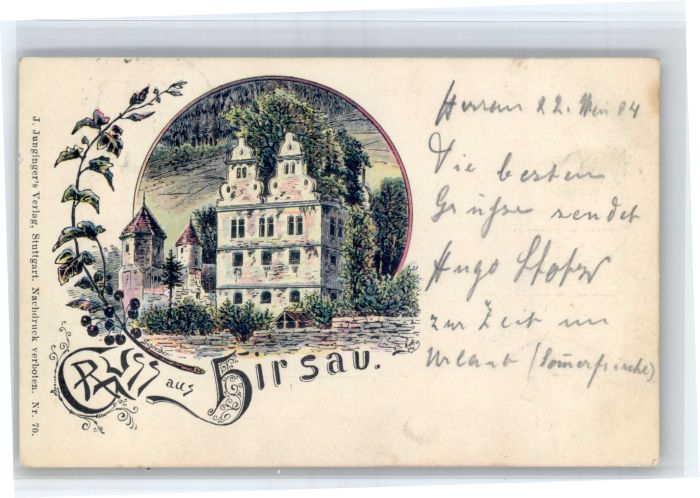 J. Junginger's Verlag, Stuttgart. Nachdruck verboten. Nr. 70.
Gruss aus Hirsau.
22. Mai 04
Die besten
Grüsse sendet
Hugo
zur Zeit im
Urlaub (Sommerfrische)